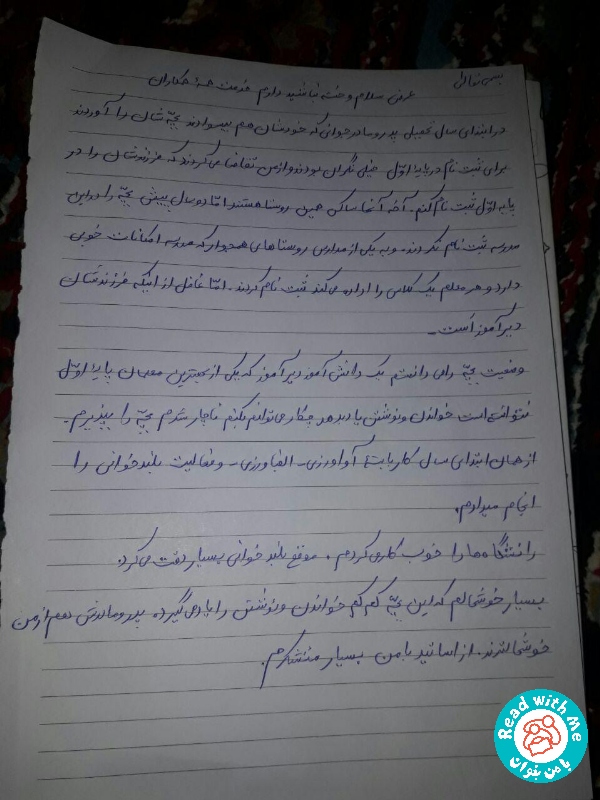 بسمه تعالی
عرض سلام و خسته نباشید دارم خدمت همه همکاران
در ابتدای سال تحصیلی پدر و مادر جوانی که خودشان هم بیسوادند بچّه شان را آوردند
برای ثبت نام در پایه اوّل خیلی نگران بودند و از من تقاضا می‌کردند که فرزندشان را در
پایه اوّل ثبت نام کنم. آخه آنها ساکن همین روستا هستند امّا دو سال پیش بچّه را در این
مدرسه ثبت نام نکردند. و به یکی از مدارس روستاهای همجوار که مدرسه امکانات خوبی
دارد و هر معلم یک کلاس را اداره می‌کند ثبت نام کردند. امّا غافل از اینکه فرزندشان
دیرآموز است.
وضعیت بچّه را می دانستم یک دانش آموز دیرآموز که یکی از بهترین معلمان پایه اوّل
نتوانسته است خواندن و نوشتن یاد بدهد چکار می‌توانم بکنم ناچار شدم بچّه را بپذیرم.
از همان ابتدای سال کار با آواورزی - الفباورزی - و فعالیت بلندخوانی را
انجام میدادم.
را خوب کار می‌کردم. موقع بلندخوانی بسیار دقت می‌کرد
بسیار خوشحالم که این بچّه کم کم خواندن و نوشتن را یاد می‌گیرد. پدر و مادرش هم از من
خوشحالترند. از اساتید با من بسیار متشکرم.
Read with Me
با من بخوان